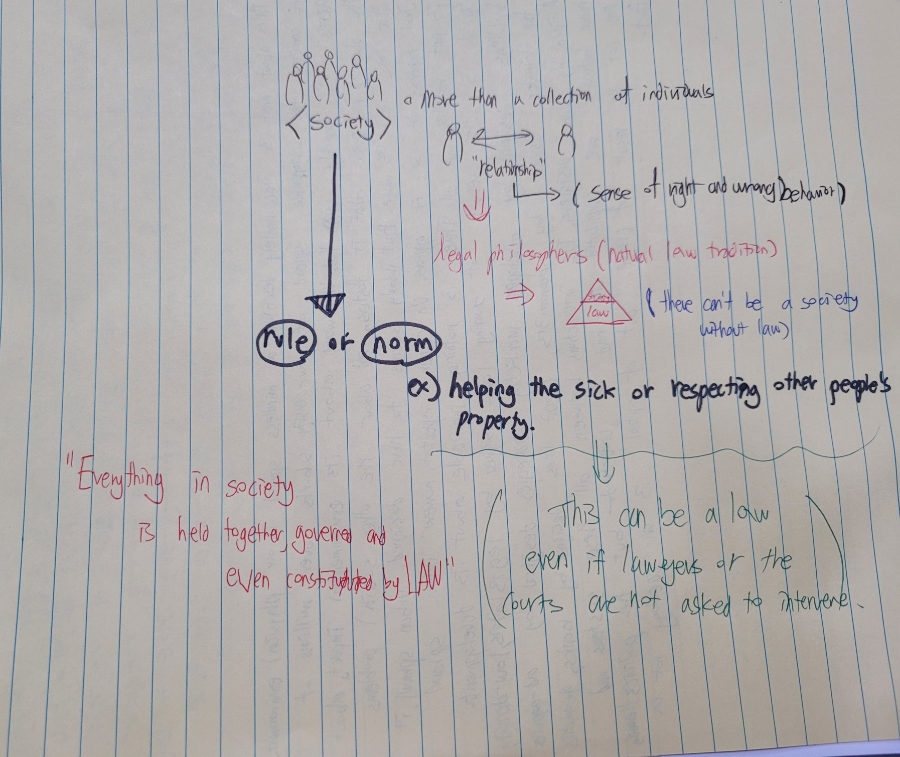 <society>
o More than a collection of individuals
"relationship"
(sense of right and wrong behavior)
legal philosophers (natural law tradition)
law
(there can't be a society
without law)
rule or norm
ex) helping the sick or respecting other people's
property.
"Everything in society
is held together, governed and
even constituted by LAW"
This can be a law
even if lawyers or the
courts are not asked to intervene.